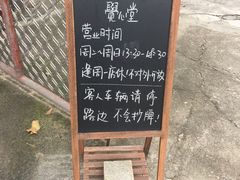 贤心堂
营业时间
周二~周日13:30-18:30
逢周一店休(不对外开放
客人车辆请停
路边 不会抄牌!